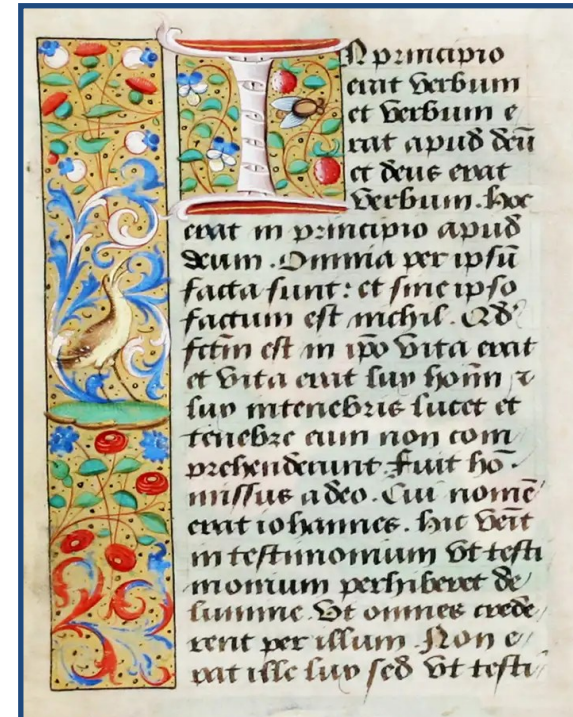 IN principio
erat verbum
et verbum e
rat apud deū
et deus erat
verbum. hoc
erat in principio apud
deum. Omnia per ipsū
facta sunt: et sine ipso
factum est nichil. Qđ
fctm̄ est in ip̄o vita erat
et vita erat lux hom̄ ⁊
lux intenebris lucet et
tenebre eum non com
prehenderunt. Fuit hō.
missus adeo. Cui nomē
erat iohannes. hic veīt
in testimonium vt testi
monium perhiberet de
lumine. Vt omnes crede
rent per illum. Non e
rat ille lux sed vt testi